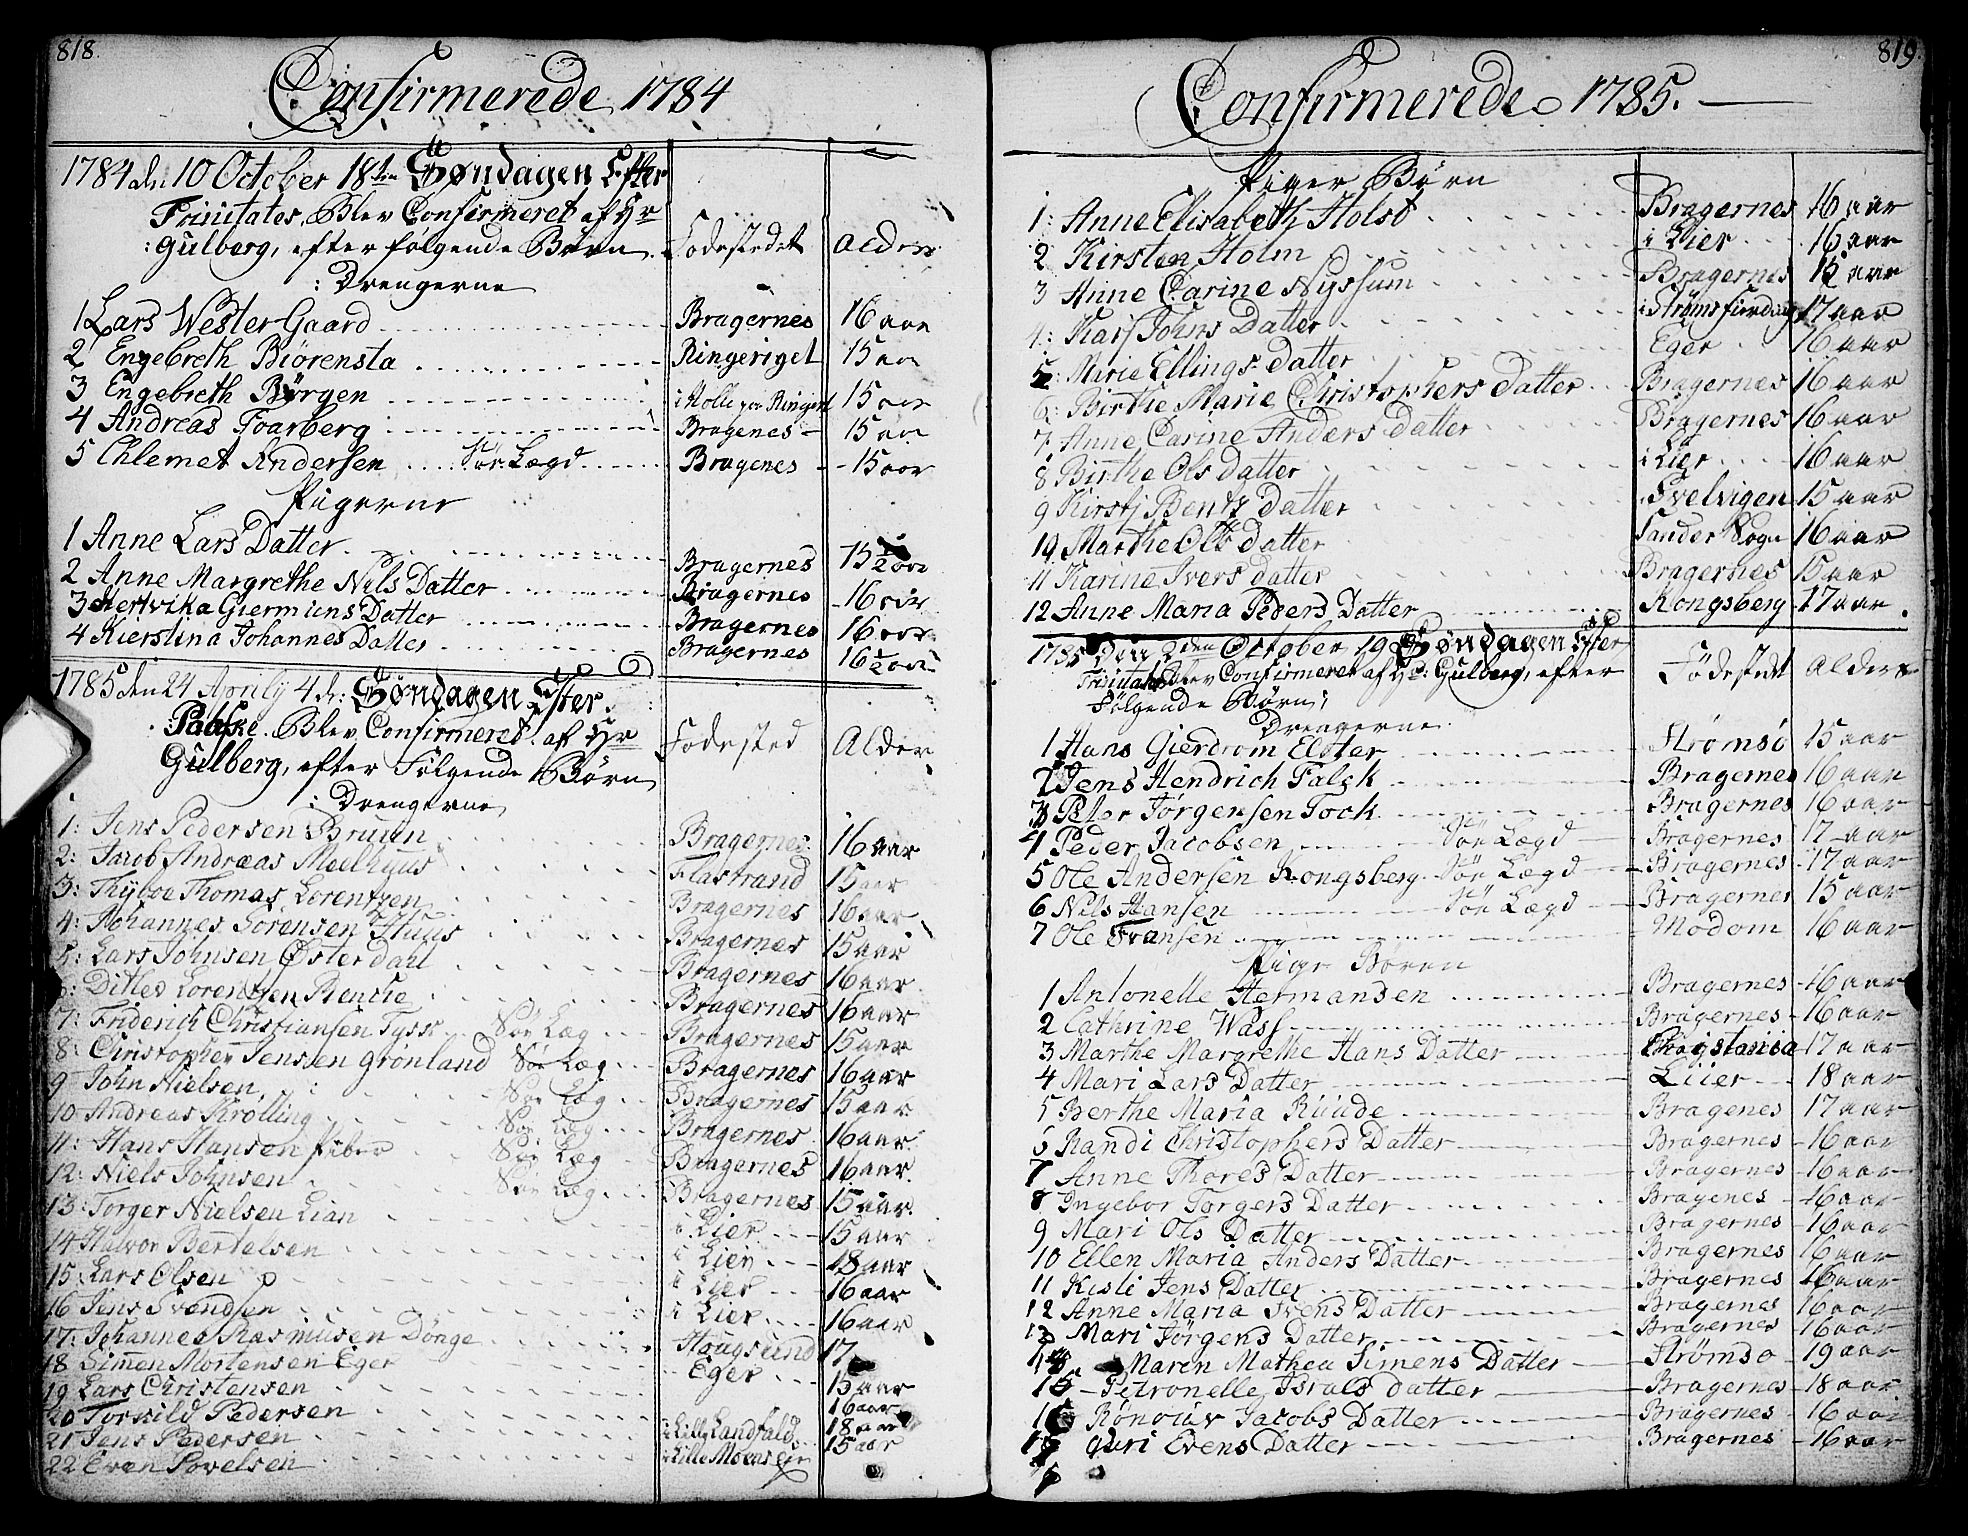 818.
Confirmerede 1784
1784 den 10 October 18de Søndagen Efter
Trinitates, Blev Confirmeret af Hr
Gulberg, efter følgende Børn Fødestedet Alder
: Drengerne
1 Lars Wester Gaard Bragernes 16 aar
2 Engebreth Biørensta Ringeriget 15 aar
3 Engebreth Børgen i Holle paa Ringeri 15 aar
4 Andreas Foarberg Bragenes 15 aar
5 Chlemet Andersen Sør Lægd Bragenes 15 aar
Pigerne
1 Anne Lars Datter Bragernes 15 1/2 aar
2 Anne Margrethe Nils Datter Bragernes 16 aar
3 Hertvika Giermiens Datter Bragernes 16 aar
4 Kierstina Johannes Datter Bragernes 16 1/2 aar
1785 den 24 Aprily 4de: Søndagen Efter
Paaske. Blev Confirmeret af Hr Fødested Alder
Gulberg, efter Følgende Børn
: Drengerne
1: Jens Pedersen Bruun Bragernes 16 aar
2: Jacob Andræas Meelhuus Flastrand 15 aar
3: Thyboe Thomas Lorentzen Bragernes 16 aar
4: Johannes Sørensen Huus Bragernes 15 aar
5: Lars Johnsen Østerdahl Bragernes 16 aar
6: Ditlev Lorentzen Benche Bragernes 16 aar
7: Friderich Christiansen Tyss Sør Læg Bragernes 15 aar
8: Christopher Jensen Grønland Sør Læg Bragernes 16 aar
9 John Nielsen Sør Læg Bragernes 15 aar
10 Andreas Krølling Sør Læg Bragernes 16 aar
11: Hans Hansen Fiber Sør Læg Bragernes 16 aar
12: Niels Johnsen Sør Læg Bragernes 15 aar
13: Torger Nielsen Lian i Lier 15 aar
14 Halvor Bertelsen i Lier 18 aar
15: Lars Olsen i Lier 16 aar
16 Jens Svendsen i Lier 16 aar
17: Johannes Rasmusen Dønge Hougsund 17
18 Simen Mortensen Eger Eger 15 aar
19 Lars Christensen 16 aar
20 Torkild Pedersen
21 Jens Pedersen i Lille Landfald 18 aar
22 Even Povelsen i Lille Moens Eie 15 aar
819.
Confirmerede 1785.
Piger Børn
1: Anne Elisabeth Holst Bragernes 16 aar
2 Kirsten Holm i Lier 16 aar
3 Anne Carine Nyssum Bragernes 15 aar
4: Kari Johns Datter i Strømsfierding 17 aar
5: Marie Ellings Datter Eger 16 aar
6: Birthe Marie Christophers Datter Bragernes 16 aar
7 Anne Carine Anders Datter Bragernes 16 aar
8 Birthe Ols Datter i Lier 16 aar
9 Kirstj Bents Datter Svelvigen 15 aar
10 Marthe Ols Datter Sander Sogn 16 aar
11 Karine Ivers Datter Bragernes 15 aar
12 Anne Maria Peders Datter Kongsberg 17 aar
1785 Den 2den October 19 Søndagen Efter
Trinitatis Blev Confirmeret af Hr: Gulberg, efter Fødestedt Alder
Følgende Børn;
Drengerne
1 Hans Gierdrom Elster Strømsø 15 aar
2 Jens Hendrich Falck Bragernes 16 aar
3 Peter Jørgensen Tock Bragernes 16 aar
4 Peder Jacobsen Sør Lægd Bragernes 17 aar
5 Ole Andersen Kongsberg Sør Lægd Bragernes 17 aar
6 Nils Hansen Sør Lægd Bragernes 15 aar
7 Ole Fransen Modom 16 aar
Pige Børen
1 Antonelle Hermansen Bragernes 16 aar
2 Cathrine Wass Bragernes 16 aar
3 Marthe Margrethe Hans Datter Christania 17 aar
4 Mari Lars Datter Liier 18 aar
5 Berthe Maria Ruude Bragenes 17 aar
6 Randi Christophers Datter Bragernes 16 aar
7 Anne Thores Datter Bragernes 16 aar
8 Ingebor Torgers Datter Bragenes 16 aar
9 Mari Ols Datter Bragernes 16 aar
10 Ellen Maria Anders Datter Bragernes 16 aar
11 Kisli Jens Datter Bragernes 16 aar
12 Anne Maria Ivers Datter Bragernes 16 aar
13 Mari Jørgens Datter Bragernes 16 aar
14 Maren Mathea Simens Datter Strømso 19 aar
15 Petronelle Israls Datter Bragernes 18 aar
16 Rønoiæv Jacobs Datter Bragernes 16 aar
17 Guri Evens Datter Bragernes 16 aar